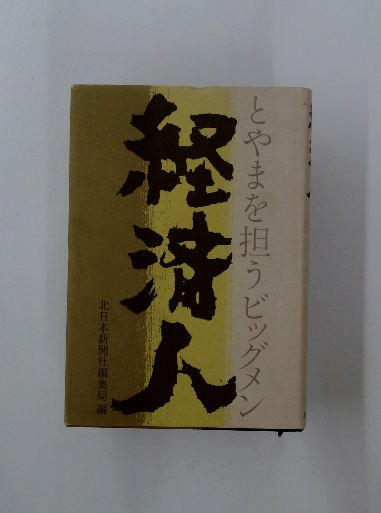 とやまを担うビッグメン
経済人
北日本新聞社編集局 編